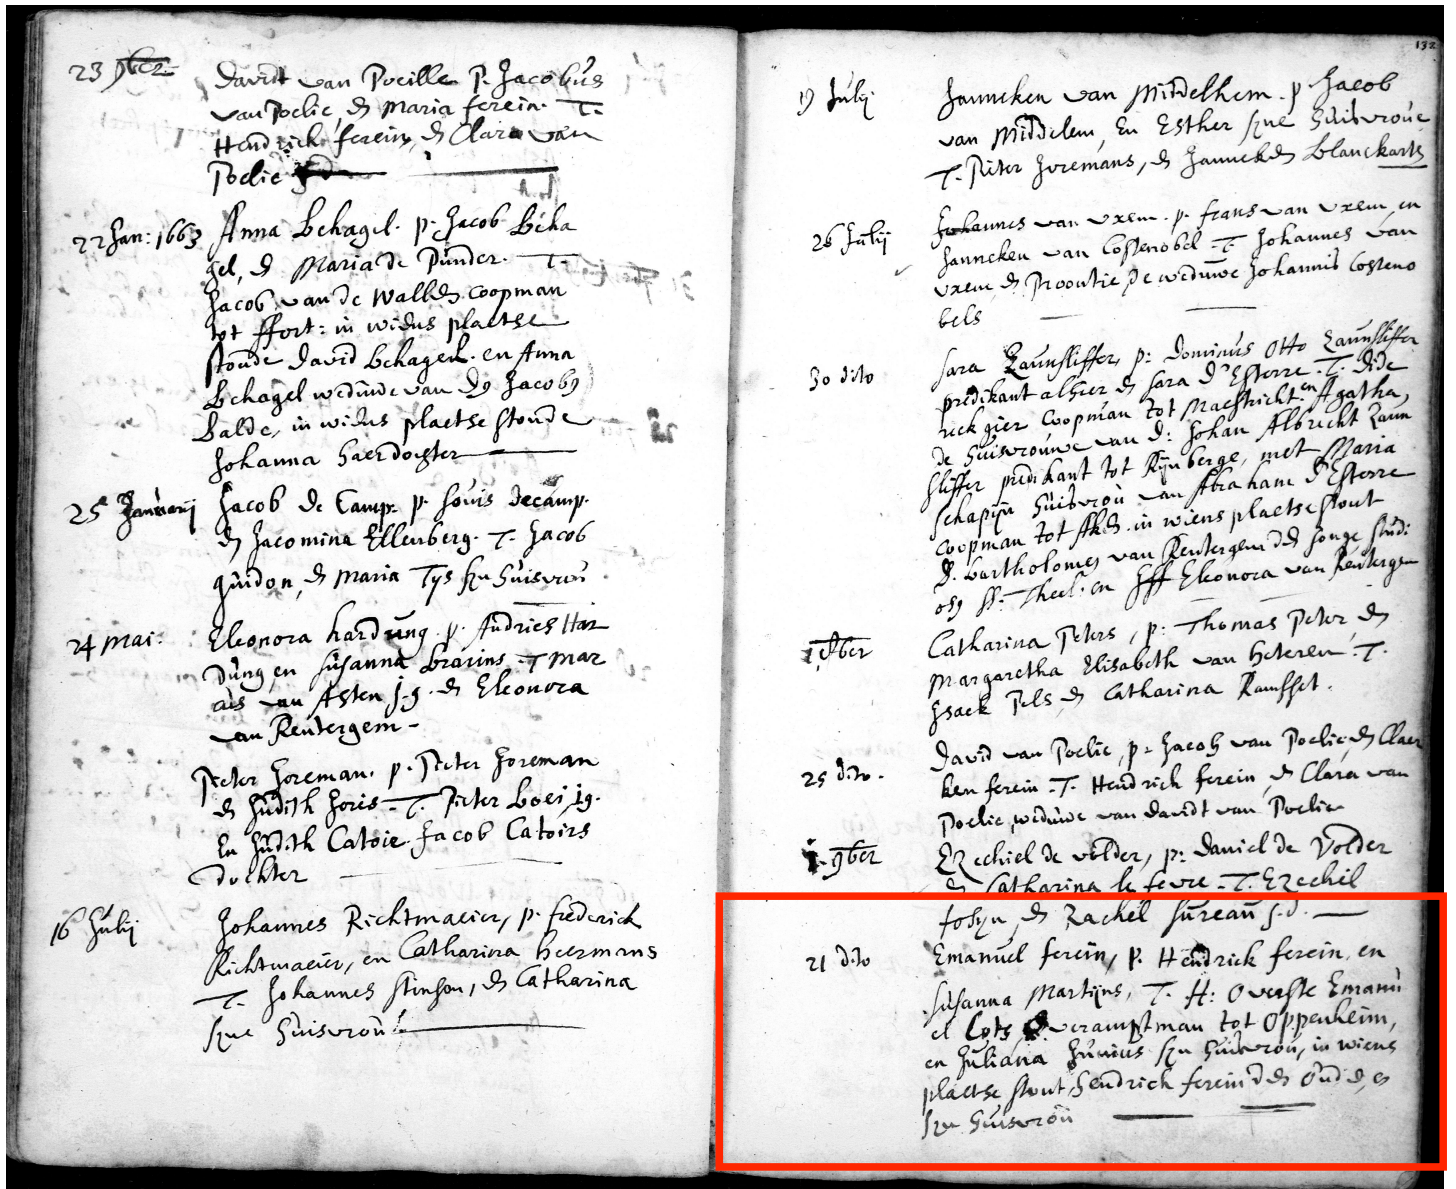 23 9ber
Davidt van Poeille. P. Jacobus
van Poelie, & Maria ferein. T.
Hendrick ferein, & Clara van
Poelie
22 Jan: 1663
Anna Behagel. p. Jacob Beha
gel, & Maria de Punder. T.
Jacob van de Wallen coopman
tot ffort: in widus plaetse
stonde David Behagel. en Anna
Behagel weduwe van Jacob
Balde, in widus plaetse stonde
Johanna haerdochter
25 Januarij
Jacob de Camp: p. Louis Decamp.
& Jacomina Ellenberg. T. Jacob
guidon, & Maria Tys syn huisvrou
24 Mai:
Eleonora hardung. p. Andries Har
dung en Susanna Brarins. T. Mar
cus van Asten j.g. & Eleonora
van Reutergem
Pieter Joreman. p. Pieter Joreman
& Judith Joris. T. Pieter Boei, j.g.
En Judith Catoir Jacob Catoirs
dochter
16 Julij
Johannes Richtmaeier, p. frederick
Richtmaeier, en Catharina heermans
T. Johannes Stinson, & Catharina
syne huisvrou
132
19 Julij
Janneken van Middelhem. p. Jacob
van Middelem, En Esther syne huisvroue
T. Pieter Joremans, & Janneken Blanckarts
26 Julij
Johannes van Uxem. p. frans van Uxem en
Janneken van Costenobel. T. Johannes van
Uxem, & Proontie de weduwe Johannis Costeno
bels
30 dito
Sara Zaunsliffer, p: Dominus Otto Zaunsliffer
predikant alhier & Sara d'Esterre. T. Dide
rick gier Coopman tot Maestricht. en Agatha,
de huisvrouwe van D: Johan Albrecht Zaun
sliffer predikant tot Rijnberge, met Maria
Schapijn huisvrou van Abraham d'Esterre
coopman tot in wiens plaetse stont
D. Bartholomeus van Reutergem de Jonge Studi
osus Theol: en Jff Eleonora van Reutergem
1 8ber
Catharina Peters, p: Thomas Peter, &
Margaretha Elisabeth van heteren. T.
Isack Pels, & Catharina
25 dito.
David van Poelie, p: Jacob van Poelie, & Claer
ken ferein. T. Hendrick ferein, & Clara van
Poelie, weduwe van davidt van Poelie
1. 9ber
Ezechiel de volder, p: Daniel de Volder
& Catharina le fevre. T. Ezechiel
fosyn, & Rachel Sureau j.d.
21 dito
Emanuel ferein, p. Hendrick ferein, en
Susanna Martijns, T. H: Overste Emanu
el Lots Overamptman tot Oppenheim,
en Juliana Junius syn huisvrou, in wiens
plaetse stont, hendrick ferein den Oude, en
syn huisvrou